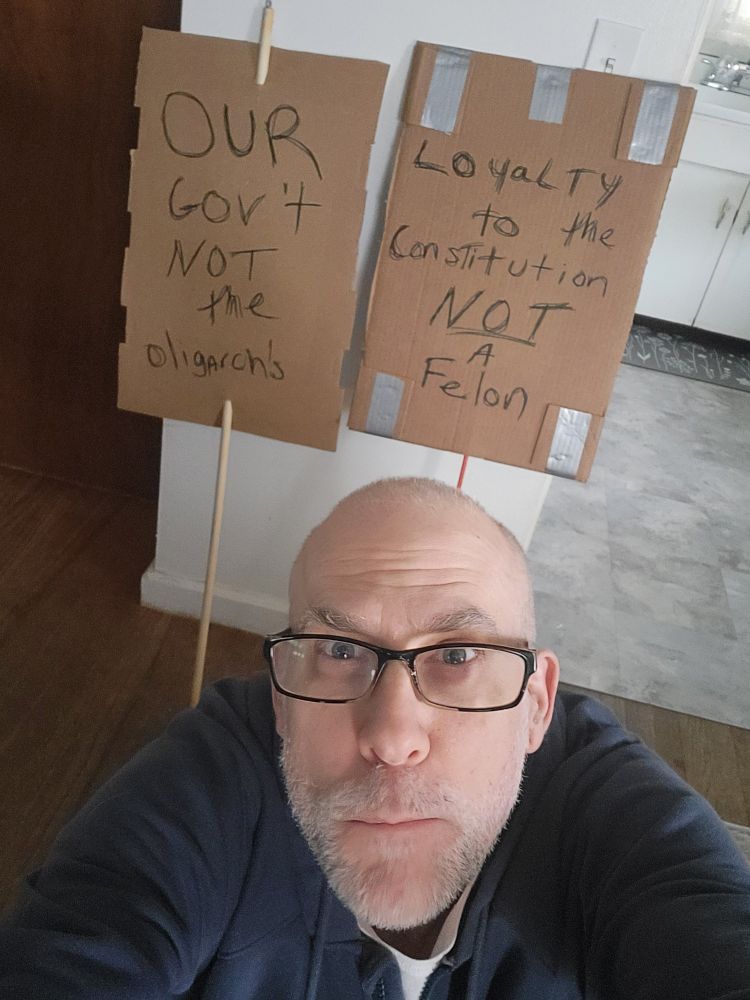 OUR
GOV't
NOT
the
oligarch's
Loyalty
to the
Constitution
NOT
A
Felon